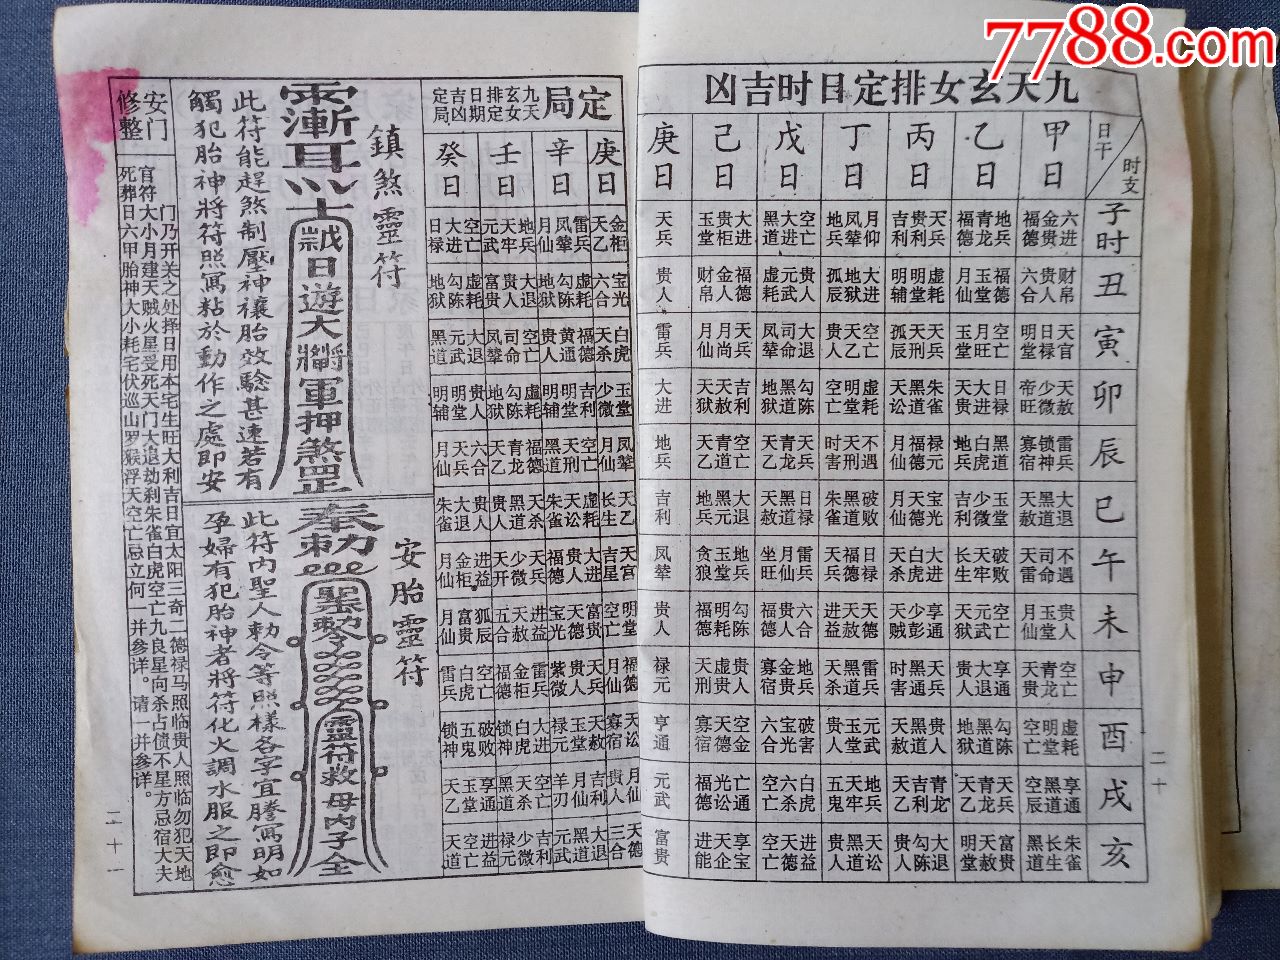 7788.com
九天玄女排定日时吉凶
日干 时支
甲日 乙日 丙日 丁日 戊日 己日 庚日
子时 六进 金贵 福德 地兵 青龙 福德 天兵 贵利 吉利 月仰 凤辇 地兵 空亡 大进 黑道 大进 贵柜 玉堂 天兵
丑 财帛 贵人 六合 福德 玉堂 月仙 虚耗 明堂 明辅 大进 地狱 孤辰 贵人 元武 虚耗 福德 金人 财帛 贵人
寅 天官 日禄 明堂 空亡 月旺 玉堂 天兵 天刑 孤辰 空亡 天乙 贵人 大退 司命 凤辇 天兵 月尚 月仙 雷兵
卯 天赦 少微 帝旺 日禄 大进 天贵 朱雀 黑道 天讼 虚耗 明堂 空亡 勾陈 黑道 地狱 吉利 天赦 天狱 大进
辰 雷兵 锁神 寡宿 黑道 白虎 地兵 禄元 福德 月仙 不遇 天刑 时害 天兵 青龙 天乙 空亡 青道 天乙 地兵
巳 大退 黑道 天赦 玉堂 少微 吉利 宝光 天德 月兵 破败 黑道 朱雀 日禄 月道 天赦 大退 黑元 地兵 吉利
午 不遇 司命 天雷 破败 天牢 长生 大兵 白虎 天杀 日禄 福德 天兵 雷兵 月仙 坐旺 地兵 玉堂 贪狼 凤辇
未 贵人 玉堂 月仙 空亡 元武 天狱 享通 少彭 天贼 天赦 天德 进益 六合 贵人 福德 勾陈 明耗 福德 贵人
申 空亡 青龙 天贵 享通 大退 贵人 天兵 黑通 时害 雷兵 黑道 天杀 地兵 金贵 寡宿 贵人 虚贵 天刑 禄元
酉 虚耗 明堂 空亡 勾陈 黑道 地狱 贵人 黑道 天赦 元武 玉堂 大进 破害 宝光 六合 空金 天德 寡宿 亨通
戌 享通 黑道 空辰 天兵 青龙 天乙 青龙 吉利 天乙 地兵 天牢 五鬼 白虎 六合 空亡 亡通 光讼 福德 元武
亥 朱雀 长生 黑道 富贵 天赦 明堂 大退 勾陈 贵人 天讼 黑道 贵人 进益 天德 空亡 享宝 天企 进能 富贵
二十
定局
九天玄女排定日期吉凶定局
庚日 辛日 壬日 癸日
金柜 天乙 雷兵 凤辇 月仙 地兵 天牢 元武 空亡 大进 日禄
宝光 六合 虚耗 勾陈 地狱 大退 贵人 富贵 虚耗 勾陈 地狱
白虎 天杀 福德 黄道 贵人 空亡 司命 天兵 大退 元武 黑道
玉堂 少微 吉利 明堂 明辅 虚耗 勾陈 地狱 贵人 明堂 明辅
凤辇 月仙 空亡 天刑 黑道 福德 青龙 天乙 六合 天兵 月仙
天乙 长生 虚耗 天讼 朱雀 天杀 黑道 天贵 贵人 大退 朱雀
天官 吉星 大进 贵人 福德 天微 少微 天开 进益 金柜 月仙
明堂 空亡 富贵 天德 宝光 进益 天赦 五合 狐辰 富贵 月仙
福德 月仙 天兵 贵人 紫微 雷兵 金柜 福德 空亡 白虎 雷兵
天讼 寡宿 天赦 玉堂 禄元 大进 白虎 锁神 破败 五鬼 锁神
月仙 贵人 吉利 月仙 羊刃 空亡 天兵 黑道 享通 玉兵 天乙
天德 三合 大退 黑道 元武 吉利 少微 禄元 进益 空亡 天道
鎮煞靈符
此符能趕煞制壓神禳胎效驗甚速若有
觸犯胎神將符照寫粘於動作之處即安
日遊大將軍押煞罡
安胎靈符
奉勅
聖勅令
靈符救母内子全
此符内聖人勅令等照樣各字宜謄寫明如
孕婦有犯胎神者將符化火調水服之即愈
安门修整
门乃开关之处择日用本宅生旺大利吉日宜太阳三奇二德禄马照临贵人照临勿犯天地
官符大小月建天贼火星受死天门大退劫刹朱雀白虎空亡九良星向杀占债不星方忌宿大夫
死葬日六甲胎神大小耗宅伏巡山罗猴浮天空亡忌立何一并参详。请一并参详。
二十一